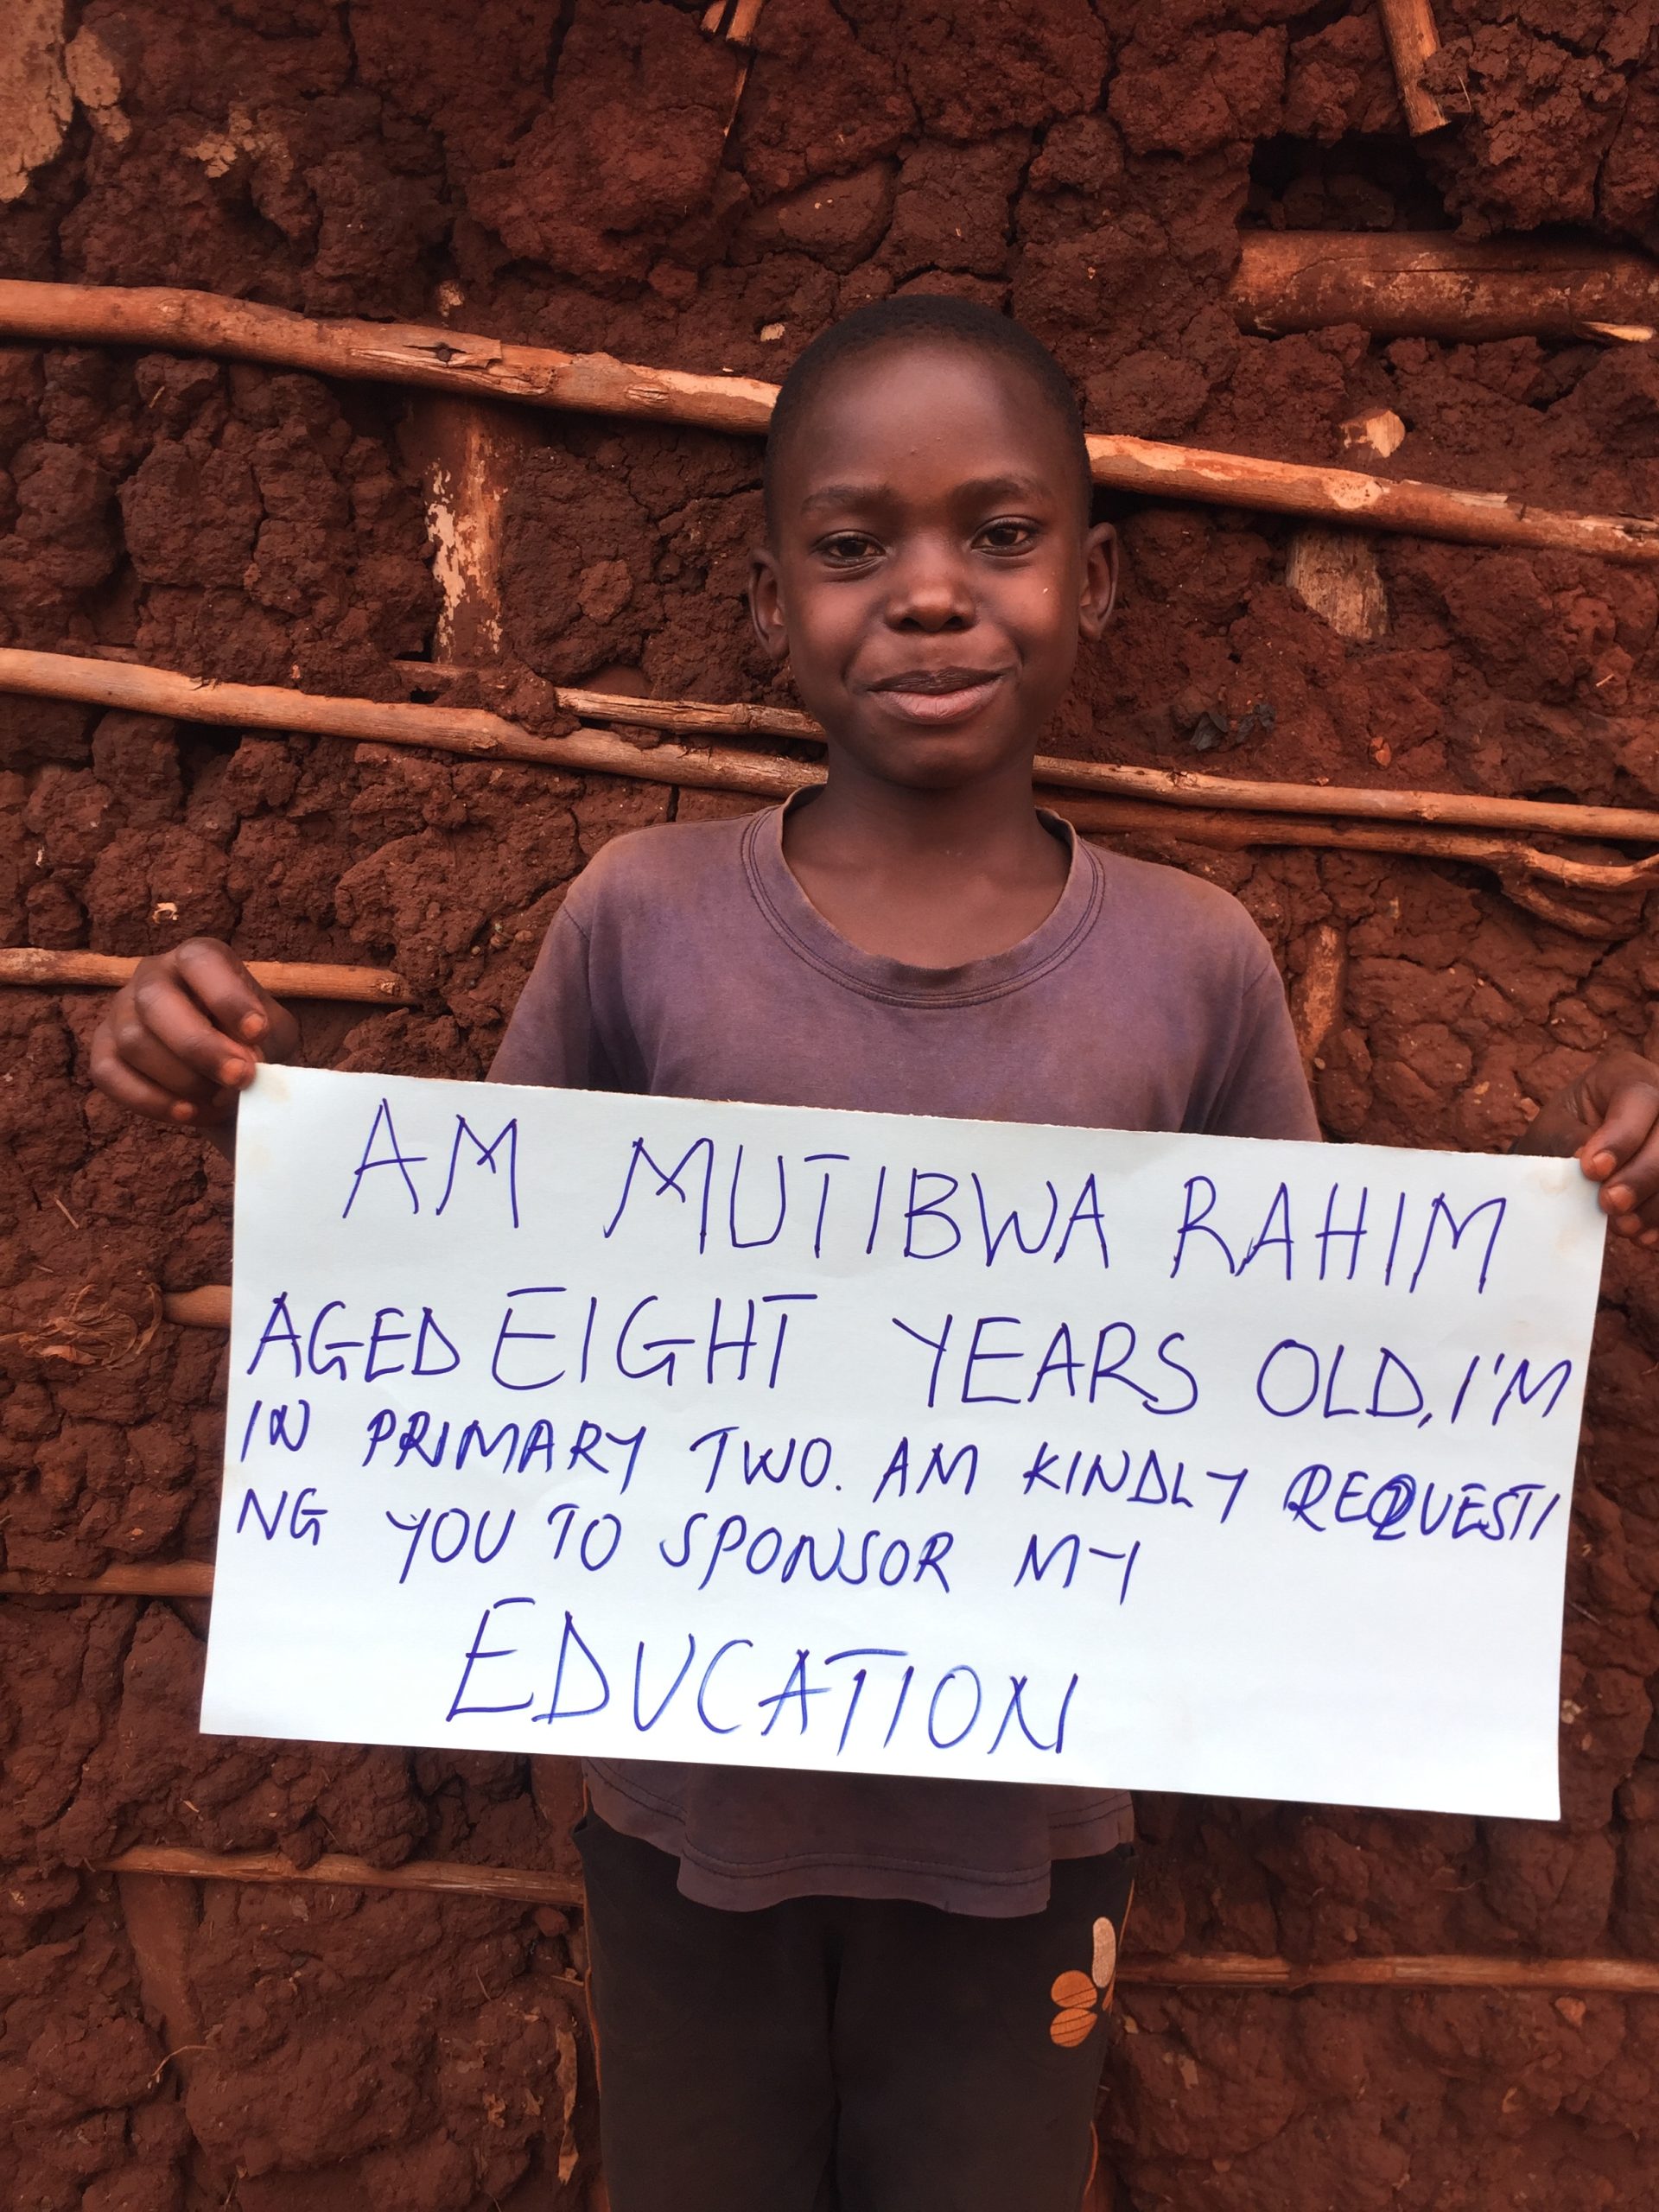 AM MUTIBWA RAHIM
AGED EIGHT YEARS OLD, I'M
IN PRIMARY TWO. AM KINDLY REQUESTI
NG YOU TO SPONSOR MY
EDUCATION